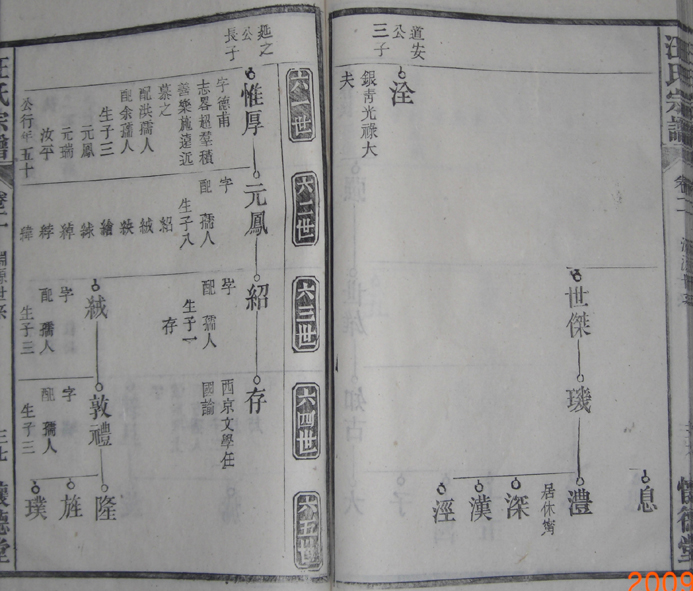 汪氏宗譜
卷二
懷德堂
息
道安
公
三子
洤
銀青光祿大
夫
世傑
璣
澧
居休甯
深
漢
涇
六一世
六二世
六三世
六四世
六五世
公
長子
惟厚
字德甫
志畧超羣積
善樂施遠近
慕之
配洪孺人
配余孺人
生子三
元鳳
元瑞
汝平
公行年五十
元鳳
字
配 孺人
生子八
紹
絨
繪
紹
字
配 孺人
生子一
存
存
西京文學任
國諭
絨
字
配 孺人
生子三
敦禮
字
配 孺人
生子三
隆
旌
璞
汪氏宗譜
懷德堂
2009